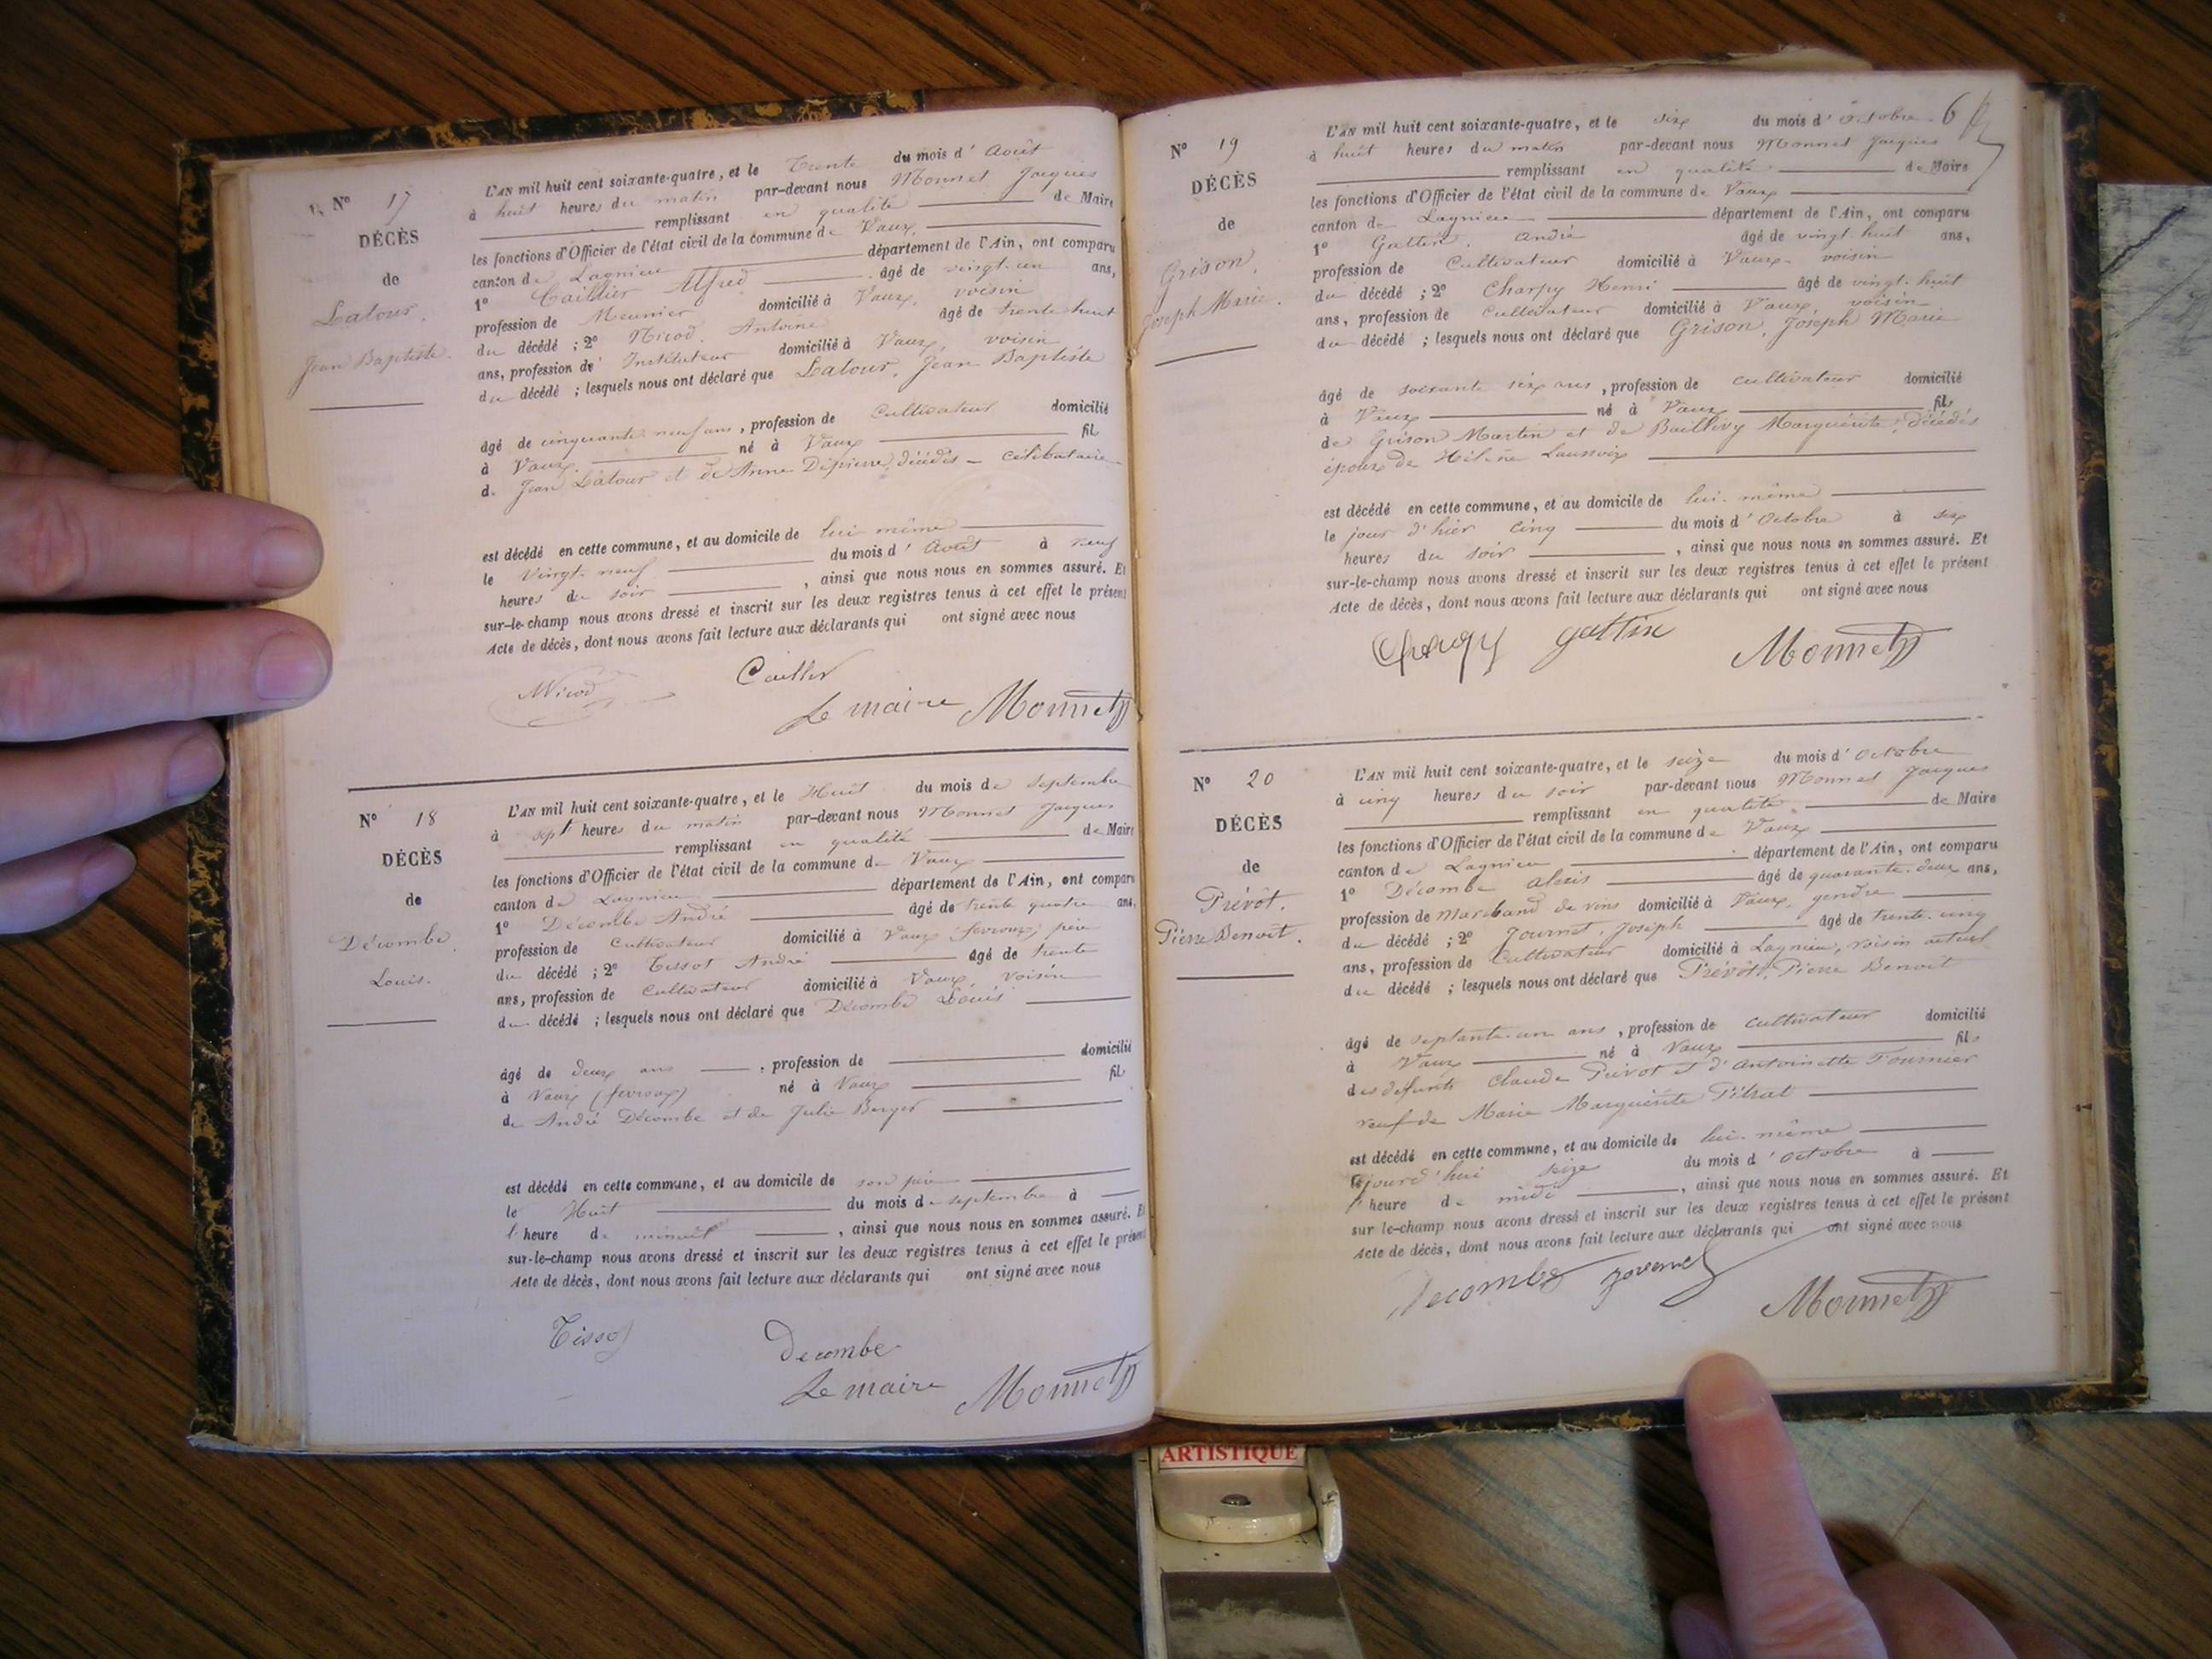 N° 17
DÉCÈS
de
Latour.
Jean Baptiste.
L'AN mil huit cent soixante-quatre, et le Trente du mois d' Août
à huit heures du matin par-devant nous Monnet Jacques
remplissant en qualité de Maire
les fonctions d'Officier de l'état civil de la commune de Vaux,
canton de Lagnieu département de l'Ain, ont comparu
1° Caillier Alfred âgé de vingt-un ans,
profession de Meunier domicilié à Vaux, voisin
du décédé ; 2° Nicod, Antoine âgé de trente huit
ans, profession de Instituteur domicilié à Vaux, voisin
du décédé ; lesquels nous ont déclaré que Latour, Jean Baptiste
âgé de cinquante neuf ans, profession de Cultivateur domicilié
à Vaux. né à Vaux fil
d. Jean Latour et de Anne Dépierre, décédés - célibataire
est décédé en cette commune, et au domicile de lui même
le Vingt-neuf du mois d' Août à neuf
heures du soir, ainsi que nous nous en sommes assuré. Et
sur-le-champ nous avons dressé et inscrit sur les deux registres tenus à cet effet le présent
Acte de décès, dont nous avons fait lecture aux déclarants qui ont signé avec nous
Nicod Caillier
Le maire Monnet
N° 18
DÉCÈS
de
Décombe.
Louis.
L'AN mil huit cent soixante-quatre, et le Huit du mois de septembre
à sept heures du matin par-devant nous Monnet Jacques
remplissant en qualité de Maire
les fonctions d'Officier de l'état civil de la commune de Vaux
canton de Lagnieu département de l'Ain, ont comparu
1° Décombe André âgé de trente quatre ans,
profession de Cultivateur domicilié à Vaux (fevroux) père
du décédé ; 2° Tissot André âgé de trente
ans, profession de Cultivateur domicilié à Vaux, voisin
du décédé ; lesquels nous ont déclaré que Décombe Louis
âgé de deux ans, profession de domicilié
à Vaux (fevroux) né à Vaux fil
de André Décombe et de Julie Berger
est décédé en cette commune, et au domicile de son père
le Huit du mois de septembre à
l'heure de minuit, ainsi que nous nous en sommes assuré. Et
sur-le-champ nous avons dressé et inscrit sur les deux registres tenus à cet effet le présent
Acte de décès, dont nous avons fait lecture aux déclarants qui ont signé avec nous
Tissot Decombe
Le maire Monnet
6
N° 19
DÉCÈS
de
Grison.
Joseph Marie.
L'AN mil huit cent soixante-quatre, et le six du mois d' Octobre
à huit heures du matin par-devant nous Monnet Jacques
remplissant en qualité de Maire
les fonctions d'Officier de l'état civil de la commune de Vaux
canton de Lagnieu département de l'Ain, ont comparu
1° Gattin. André âgé de vingt-huit ans,
profession de Cultivateur domicilié à Vaux - voisin
du décédé ; 2° Charpy Henri âgé de vingt-huit
ans, profession de Cultivateur domicilié à Vaux, voisin
du décédé ; lesquels nous ont déclaré que Grison, Joseph Marie
âgé de soixante six ans, profession de cultivateur domicilié
à Vaux né à Vaux fils
de Grison Martin et de Marguérite, décédés
époux de Hélène
est décédé en cette commune, et au domicile de lui-même
le jour d'hier cinq du mois d' Octobre à six
heures du soir, ainsi que nous nous en sommes assuré. Et
sur-le-champ nous avons dressé et inscrit sur les deux registres tenus à cet effet le présent
Acte de décès, dont nous avons fait lecture aux déclarants qui ont signé avec nous
Charpy gattin Monnet
N° 20
DÉCÈS
de
Prévôt.
Pierre Benoît.
L'AN mil huit cent soixante-quatre, et le seize du mois d' Octobre
à cinq heures du soir par-devant nous Monnet Jacques
remplissant en qualité de Maire
les fonctions d'Officier de l'état civil de la commune de Vaux
canton de Lagnieu département de l'Ain, ont comparu
1° Décombe Alexis âgé de quarante-deux ans,
profession de Marchand de vins domicilié à Vaux, gendre
du décédé ; 2° Journet, Joseph âgé de trente-cinq
ans, profession de Cultivateur domicilié à Lagnieu, voisin actuel
du décédé ; lesquels nous ont déclaré que Prévôt, Pierre Benoît
âgé de septante-un ans, profession de cultivateur domicilié
à Vaux né à Vaux fils
des defunts Claude Prévot et d'Antoinette Fournier
veuf de Marie Marguérite Pitrat
est décédé en cette commune, et au domicile de lui-même
aujourd'hui seize du mois d' octobre à
l'heure de midi, ainsi que nous nous en sommes assuré. Et
sur le-champ nous avons dressé et inscrit sur les deux registres tenus à cet effet le présent
Acte de décès, dont nous avons fait lecture aux déclarants qui ont signé avec nous
Decombe Monnet
ARTISTIQUE